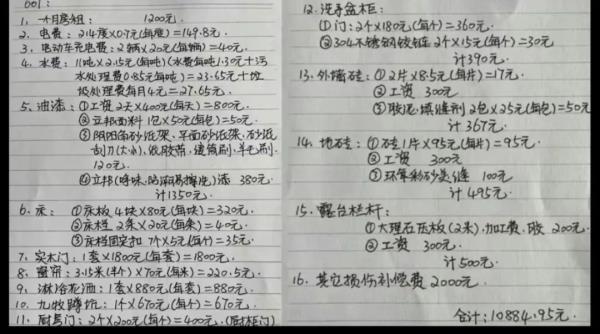 001:
1、一个月房租: 1200元.
2、电费: 214度×0.7元(每度)=149.8元.
3、电动车充电费:2辆×20元(每辆)=40元.
4、水费: 11吨×2.15元(每吨)(水费每吨1.30元+污
水处理费0.85元每吨)=23.65元+垃
圾处理费每月4元=27.65元.
5、油漆: ①工资2天×400元(每天)=800元.
②立邦面料1包×50元(每包)=50元.
③阴阳角砂纸架、平面砂纸架、砂纸
刮刀(大小)、收胶带、滚筒刷、羊毛刷.
120元.
④立邦(呼吸、防潮易擦洗)漆 380元.
计1350元.
6、床: ①床板4块×80元(每块)=320元.
②床档 2条×20元(每条)=40元.
③床档固定扣 7个×5元(每个)=35元.
7、实木门: 1套×1800元(每套)=1800元.
8、窗帘: 3.15米(半个)×70元(每米)=220.5元.
9、淋浴花洒: 1套×880元(每套)=880元.
10、九牧蹲坑: 1个×670元(每个)=670元.
11、厨房门: 2个×200元(每个)=400元.(厨柜门)
12、洗手盆柜:
①门:2个×180元(每个)=360元.
②304不锈钢铰链 2个×15元(每个)=30元
计390元.
13、外墙砖: ①2片×8.5元(每片)=17元.
②工资 300元
③胶泥.填缝剂 2包×25元(每包)=50元
计 367元.
14、地砖: ①砖1片×95元(每片)=95元.
②工资 300元.
③环氧彩砂美缝 100元
计 495元.
15、露台栏杆:
①大理石压板(2米),加工费.胶 200元.
②工资 300元.
计500元.
16、其它损伤补偿费 2000元.
合计:10884.95元.